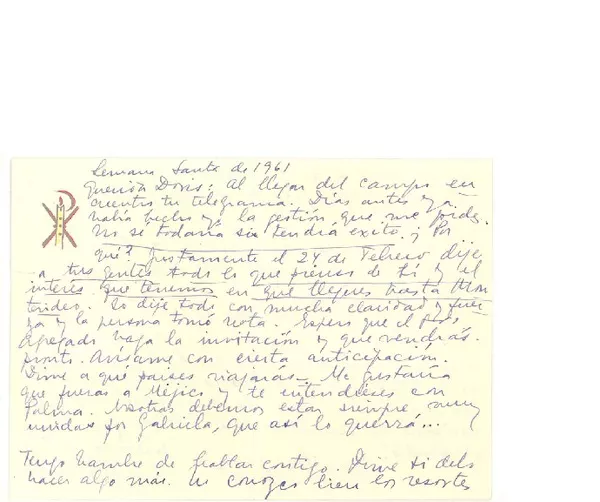 Semana Santa de 1961
Querida Doris: Al llegar del campo en
cuentro tu telegrama. Días antes ya
había hecho yo la gestión que me pides.
No sé todavía si tendrá éxito. ¿ Por
qué? Justamente el 24 de Febrero dije
a tus gentes todo lo que pienso de ti y el
interés que tenemos en que llegues hasta Mon
tevideo. Lo dije todo con mucha claridad y fuer
za y la persona tomó nota. Espero que el
Agregado haga la invitación y que vendrás
pronto. Avísame con cierta anticipación.
Dime a qué países viajarás. Me gustaría
que fueras a Méjico y te entendieses con
Palma. Nosotras debemos estar siempre muy
unidas por Gabriela, que así lo querrá...
Tengo hambre de hablar contigo. Dime si debo
hacer algo más. conozco bien los resortes